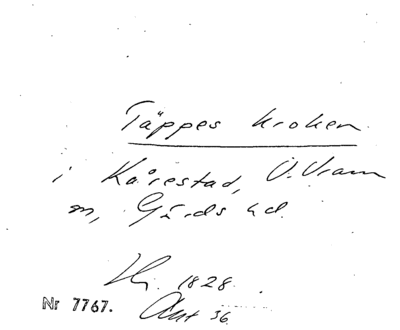 Täppes kroken
i Kårestad, V. Vram
m, Gärds hd.
1828.
Nr 7767. Akt 36